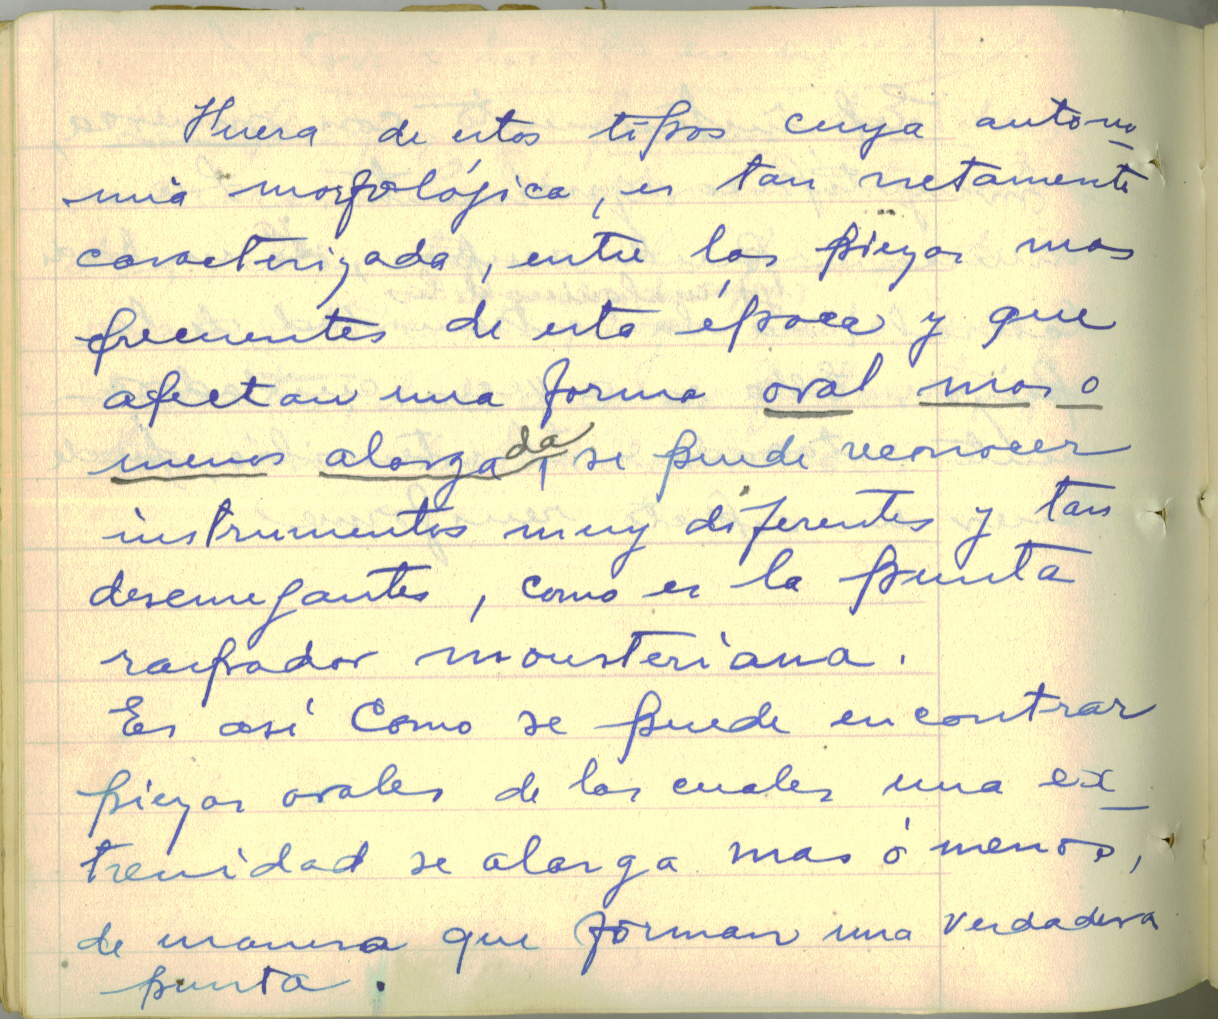 Huera de estos tipos cuya autono_
mia morfológica, es tan netamente
caracterizada, entre las piezas mas
frecuentes de esta época y que
afectan una forma oval mas o
menos alargada, se puede reconocer
instrumentos muy diferentes y tan
desemejantes, como es la punta
raspador mousteriana.
Es así Como se puede encontrar
piezas ovales de las cuales una ex_
tremidad se alarga mas ó menos,
de manera que forman una verdadera
punta.